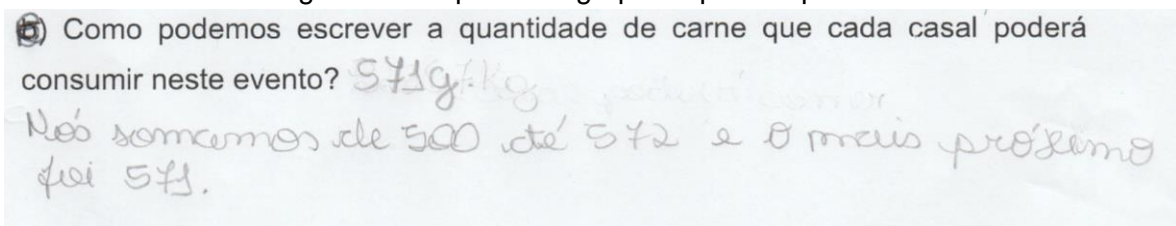 b) Como podemos escrever a quantidade de carne que cada casal poderá
consumir neste evento? 571g.
Nós somamos de 500 até 572 e o mais próximo
foi 571.